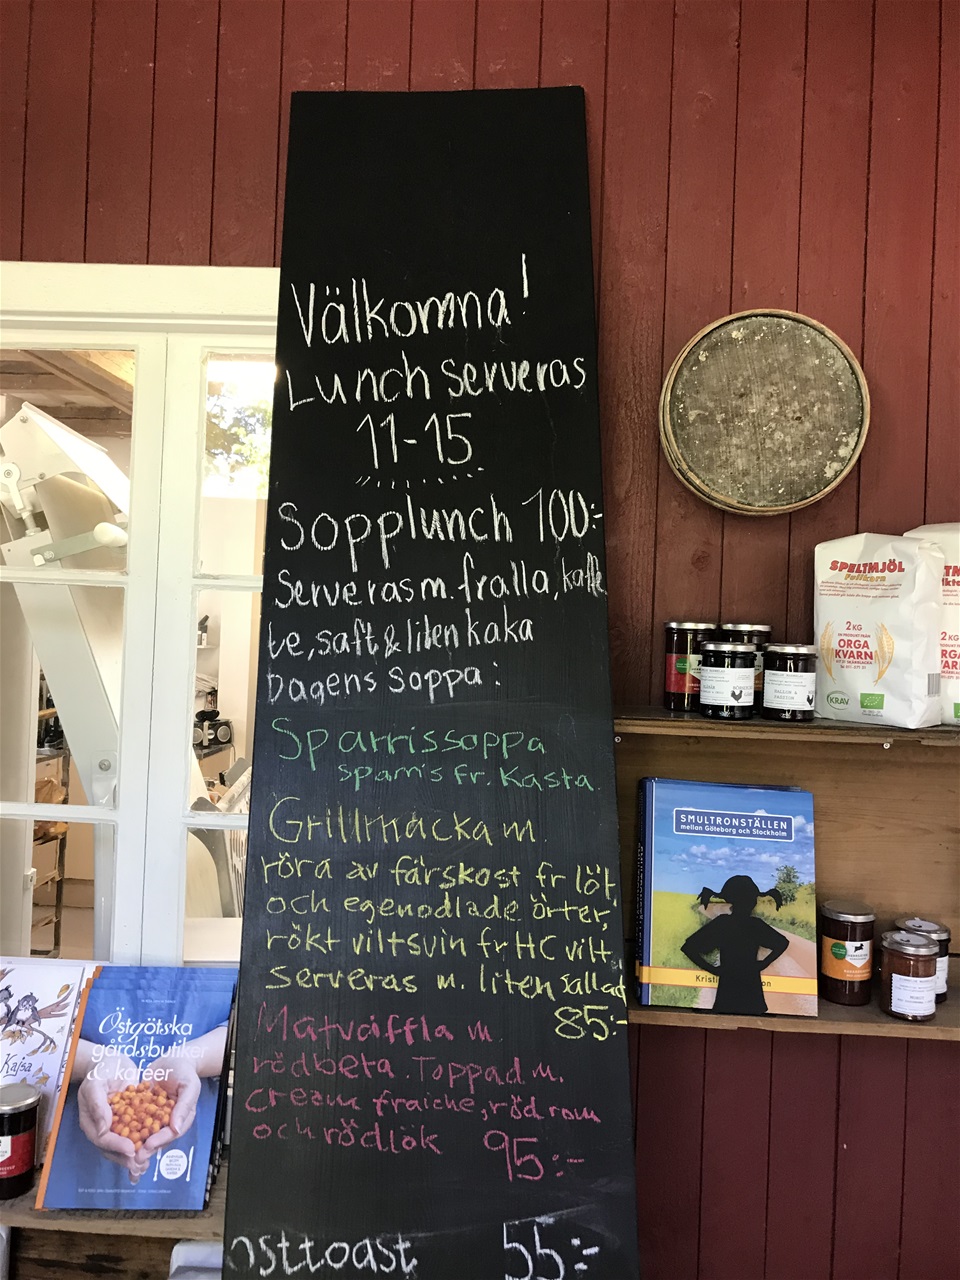 Välkomna!
Lunch serveras
11-15
Sopplunch 100:-
Serveras m. fralla, kaffe
te, saft & liten kaka
Dagens soppa:
Sparrissoppa
sparris fr. Kasta.
Grillmacka m.
röra av färskost fr löt,
och egenodlade örter,
rökt viltsvin fr HC vilt,
serveras m. liten sallad
85:-
Matvåffla m.
rödbeta. Toppad m.
cream fraiche, röd rom
och rödlök 95:-
osttoast 55:-
SPELTMJÖL
Fullkorn
2 KG
ORGA
KVARN
KRAV
2 KG
HALLON &
SMULTRONSTÄLLEN
mellan Göteborg och Stockholm
Östgötska
gårdsbutiker
& kaféer
Kajsa